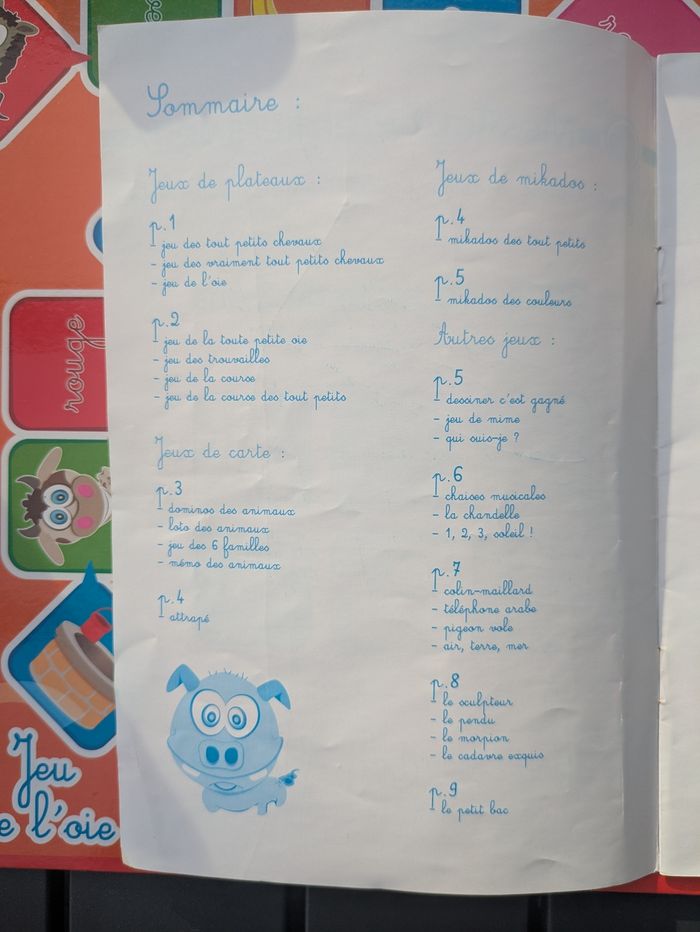 Sommaire :
Jeux de plateaux :
p.1
- jeu des tout petits chevaux
- jeu des vraiment tout petits chevaux
- jeu de l'oie
p.2
- jeu de la toute petite oie
- jeu des trouvailles
- jeu de la course
- jeu de la course des tout petits
Jeux de carte :
p.3
- dominos des animaux
- loto des animaux
- jeu des 6 familles
- mémo des animaux
p.4
- attrapé
Jeux de mikados :
p.4
- mikados des tout petits
p.5
- mikados des couleurs
Autres jeux :
p.5
- dessiner c'est gagné
- jeu de mime
- qui suis-je ?
p.6
- chaises musicales
- la chandelle
- 1, 2, 3, soleil !
p.7
- colin-maillard
- téléphone arabe
- pigeon vole
- air, terre, mer
p.8
- le sculpteur
- le pendu
- le morpion
- le cadavre exquis
p.9
- le petit bac
rouge
Jeu
e l'oie